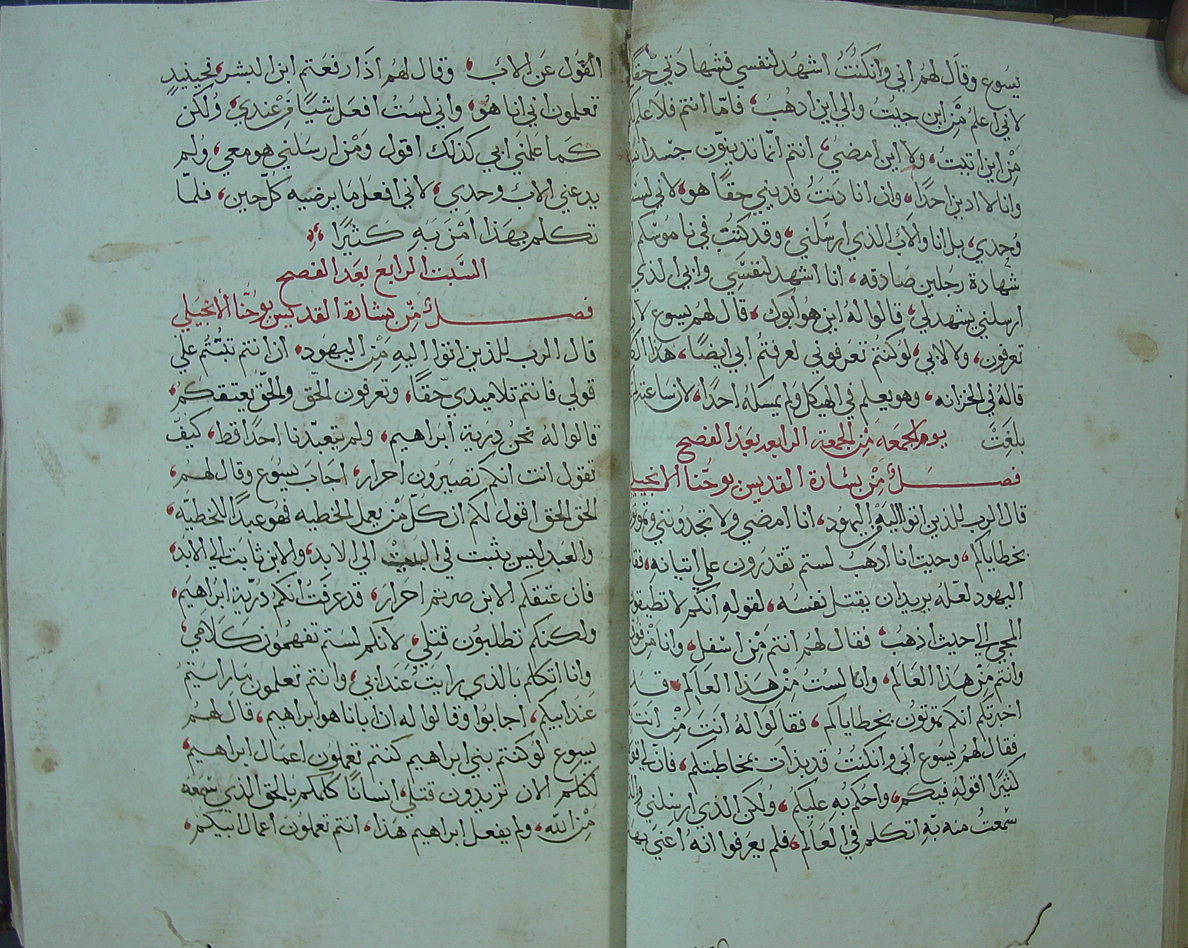 يسوع وقال لهم اني وانكنتُ اشهد لنفسي فشهادتي حقًا
لاني اعلم مِن اين جيتُ والي اين اذهبُ، فامّا انتم فلا علم
مِن اين اتيتُ، ولا اين امضي، انتم انما تدينون جسدا
وانا لا ادين احدًا، وان انا دنتُ فديني حقًا هو، لاني لست
وحدي، بل انا والاب الذي ارسلني، وقد كتبَ في ناموسكم
شهادة رجلين صادقه، انا اشهد لنفسي وابي الذي
ارسلني يشهد لي، قالوا له اين هو ابوك، قال لهم يسوع لا
تعرفون، ولا لابي، لوكنتم تعرفوني لعرفتم ابي ايضًا، هذا
قاله في الخزانه، وهو يعلم في الهيكل ولم يمسكه احدًا، لان ساعته
بلغتَ يوم الجمعه مِن الجمعة الرابعه بعد الفصح
فصل مِن بشارة القديس يوحنا الانجيلي
قال الرب للذين اتوا اليه من اليهود، انا امضي ولا تجدونني وتموتون
بخطاياكم، وحيث انا اذهبُ لستم تقدرون علي اتيانه، فقال
اليهود لعلّه يريد ان يقتل نفسه، لقوله انكم لا تطيقون
المجي الى حيث اذهبُ، فقال لهم انتم مِن اسفل، وانا من فوق
وانتم مِن هذا العالم، وانا لستُ مِن هذا العالم، قد
اخبرتكم انكم تموتون بخطاياكم، فقالوا له انتَ مَن انتَ
فقال لهم يسوع اني وانكنتُ قد بدات بمخاطبتكم، فانّ لي
كثيرًا اقوله فيكم، واحكم به عليكم، ولكن الذي ارسلني
سمعتُ منه به اتكلم في العالم، فلم يعرفوا انه اعني بهذا
القول عن الاب، وقال لهم اذا رفعتم ابن البشر، فحينيدٍ
تعلمون اني انا هو، واني لستُ افعل شيًا من عندي، ولكن
كما علمني ابي كذلك اقول ومَن ارسلني هو معي، ولم
يدعني الاب وحدي، لاني افعل ما يرضيه كلّ حين، فلمّا
تكلم بهذا امَن به كثيرًا
السَبت الرابع بعد الفصح
فصل مِن بشارة القديس يوحنا الانجيلي
قال الرب للذين اتوا اليه مِن اليهود، ان انتم ثبتّم علي
قولي فانتم تلاميدي حقًا، وتعرفون الحق والحق يعتقكم،
قالوا له نحن درية ابراهيم، ولم يتعبّدنا احدًا قط، كيف
تقول انت انكم تصيرون احرار، اجاب يسوع وقال لهم،
الحق الحق اقول لكم ان كلّ مَن يعمل الخطيه فهو عبدًا للخطيه،
والعبد ليس يثبت في البيت الى الابد، والابن ثابت الى الابد،
فان عتقكم الابن صرتم احرار، قد عرفتُ انكم ذريّة ابراهيم،
ولكنكم تطلبون قتلي، لانكم لستم تفهمون كلامي،
وانا اتكلم بالذي رايتُ عند ابي، وانتم تعملون ما رايتمُ
عند ابيكم، اجابوا وقالوا له ان ابانا هو ابراهيم، قال لهم
يسوع لوكنتم بني ابراهيم كنتم تعملون اعمال ابراهيم،
لكنكم الان تريدون قتلي، انسانًا كلمكم بالحق الذي سمعه
مِن الله، ولم يفعل ابراهيم هذا، انتم تعملون اعمال ابيكم،